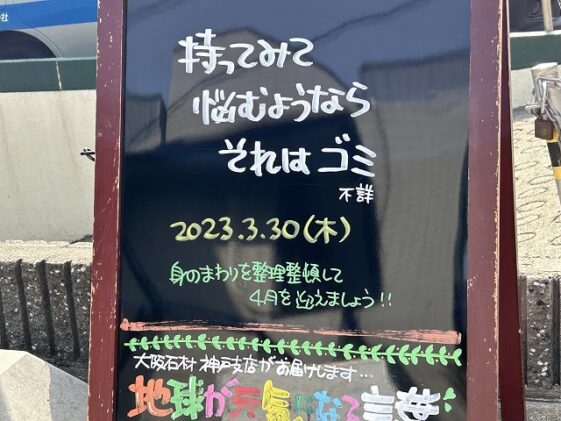 持ってみて
悩むようなら
それは ゴミ
不詳
2023.3.30(木)
身のまわりを整理整頓して
4月を迎えましょう!!
大阪石材 神戸支店がお届けします…
地球が元気になる言葉